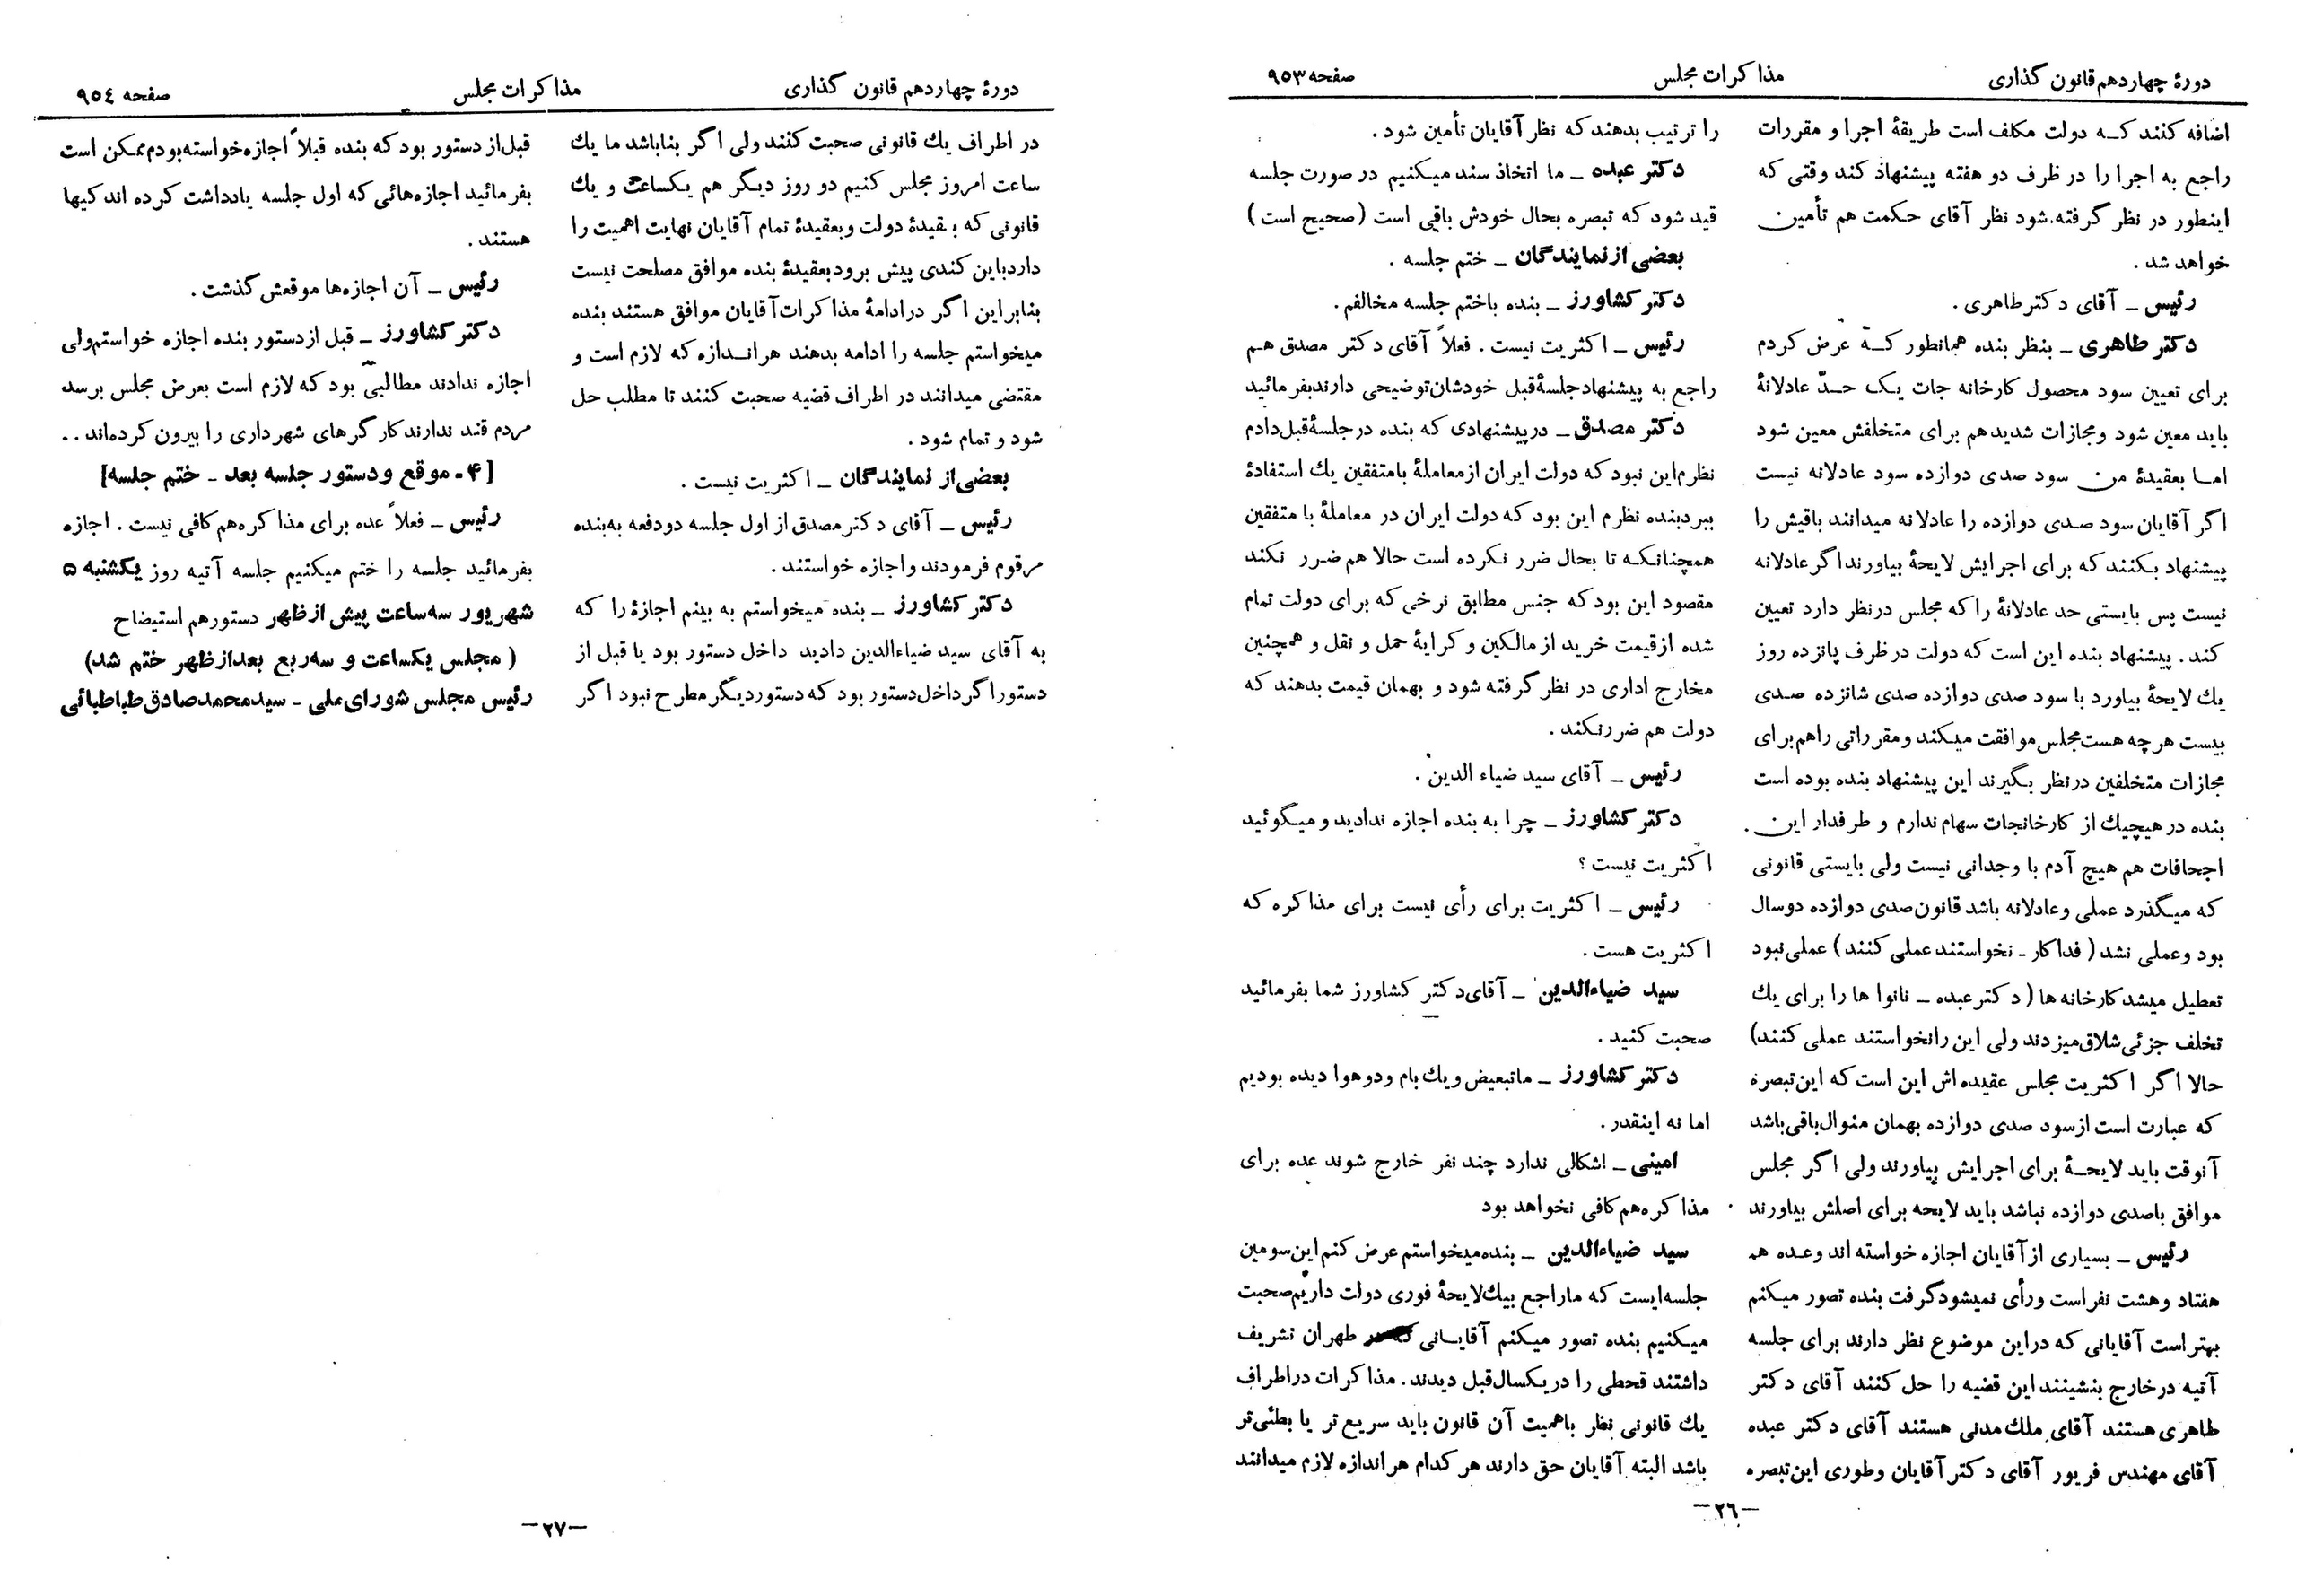 دورهٔ چهاردهم قانون گذاری
مذاکرات مجلس
صفحه ۹۵۳
اضافه کنند که دولت مکلف است طریقهٔ اجرا و مقررات
راجع به اجرا را در ظرف دو هفته پیشنهاد کند وقتی که
اینطور در نظر گرفته شود نظر آقای حکمت هم تأمین
خواهد شد .
رئیس ــ آقای دکتر طاهری .
دکتر طاهری ــ بنظر بنده همانطور که عرض کردم
برای تعیین سود محصول کارخانه جات یک حدّ عادلانهٔ
باید معین شود ومجازات شدید هم برای متخلفش معین شود
اما بعقیدهٔ من سود صدی دوازده سود عادلانه نیست
اگر آقایان سود صدی دوازده را عادلانه میدانند باقیش را
پیشنهاد بکنند که برای اجرایش لایحهٔ بیاورند اگر عادلانه
نیست پس بایستی حد عادلانهٔ را که مجلس در نظر دارد تعیین
کند . پیشنهاد بنده این است که دولت در ظرف پانزده روز
یك لایحهٔ بیاورد با سود صدی دوازده صدی شانزده صدی
بیست هر چه هست مجلس موافقت میکند و مقرراتی راهم برای
مجازات متخلفین در نظر بگیرند این پیشنهاد بنده بوده است
بنده در هیچیك از کارخانجات سهام ندارم و طرفدار این
اجحافات هم هیچ آدم با وجدانی نیست ولی بایستی قانونی
که میگذرد عملی و عادلانه باشد قانون صدی دوازده دوسال
بود و عملی نشد ( فداکار ـ نخواستند عملی کنند ) عملی نبود
تعطیل میشد کارخانه ها ( دکتر عبده ــ نانوا ها را برای یك
تخلف جزئی شلاق میزدند ولی این را نخواستند عملی کنند)
حالا اگر اکثریت مجلس عقیده اش این است که این تبصره
که عبارت است از سود صدی دوازده بهمان منوال باقی باشد
آنوقت باید لایحهٔ برای اجرایش بیاورند ولی اگر مجلس
موافق باصدی دوازده نباشد باید لایحه برای اصلش بیاورند
رئیس ــ بسیاری از آقایان اجازه خواسته اند وعده هم
هفتاد و هشت نفر است ورأی نمیشود گرفت بنده تصور میکنم
بهتر است آقایانی که دراین موضوع نظر دارند برای جلسه
آتیه در خارج بنشینند این قضیه را حل کنند آقای دکتر
طاهری هستند آقای ملك مدنی هستند آقای دکتر عبده
آقای مهندس فریور آقای دکتر آقایان وطوری این تبصره
را ترتیب بدهند که نظر آقایان تأمین شود .
دکتر عبده ــ ما اتخاذ سند میکنیم در صورت جلسه
قید شود که تبصره بحال خودش باقی است (صحیح است )
بعضی از نمایندگان ــ ختم جلسه .
دکتر کشاورز ــ بنده باختم جلسه مخالفم .
رئیس ــ اکثریت نیست . فعلاً آقای دکتر مصدق هم
راجع به پیشنهاد جلسهٔ قبل خودشان توضیحی دارند بفرمائید
دکتر مصدق ــ در پیشنهادی که بنده در جلسهٔ قبل دادم
نظرم این نبود که دولت ایران از معاملهٔ بامتفقین یك استفادهٔ
ببرد بنده نظرم این بود که دولت ایران در معاملهٔ با متفقین
همچنانکه تا بحال ضرر نکرده است حالا هم ضرر نکند
مقصود این بود که جنس مطابق نرخی که برای دولت تمام
شده از قیمت خرید از مالکین و کرایهٔ حمل و نقل و همچنین
مخارج اداری در نظر گرفته شود و بهمان قیمت بدهند که
دولت هم ضرر نکند .
رئیس ــ آقای سید ضیاء الدین .
دکتر کشاورز ــ چرا به بنده اجازه ندادید و میگوئید
اکثریت نیست ؟
رئیس ــ اکثریت برای رأی نیست برای مذاکره که
اکثریت هست .
سید ضیاءالدین ــ آقای دکتر کشاورز شما بفرمائید
صحبت کنید .
دکتر کشاورز ــ ماتبعیض ویك بام ودوهوا دیده بودیم
اما نه اینقدر .
امینی ــ اشکالی ندارد چند نفر خارج شوند عده برای
مذاکره هم کافی نخواهد بود
سید ضیاءالدین ــ بنده میخواستم عرض کنم این سومین
جلسه ایست که ما راجع بیك لایحهٔ فوری دولت داریم صحبت
میکنیم بنده تصور میکنم آقایانی طهران تشریف
داشتند قحطی را در یکسال قبل دیدند . مذاکرات در اطراف
یك قانونی نظر باهمیت آن قانون باید سریع تر یا بطئی تر
باشد البته آقایان حق دارند هر کدام هر اندازه لازم میدانند
ــ۲٦ــ
دورهٔ چهاردهم قانون گذاری
مذاکرات مجلس
صفحه ۹٥٤
در اطراف یك قانونی صحبت کنند ولی اگر بناباشد ما یك
ساعت امروز مجلس کنیم دو روز دیگر هم یکساعت و یك
قانونی که بعقیدهٔ دولت و بعقیدهٔ تمام آقایان نهایت اهمیت را
دارد باین کندی پیش برود بعقیدهٔ بنده موافق مصلحت نیست
بنابراین اگر در ادامهٔ مذاکرات آقایان موافق هستند بنده
میخواستم جلسه را ادامه بدهند هر اندازه که لازم است و
مقتضی میدانند در اطراف قضیه صحبت کنند تا مطلب حل
شود و تمام شود .
بعضی از نمایندگان ــ اکثریت نیست .
رئیس ــ آقای دکتر مصدق از اول جلسه دودفعه به بنده
مرقوم فرمودند واجازه خواستند .
دکتر کشاورز ــ بنده میخواستم به بینم اجازهٔ را که
به آقای سید ضیاءالدین دادید داخل دستور بود یا قبل از
دستور اگر داخل دستور بود که دستور دیگر مطرح نبود اگر
قبل از دستور بود که بنده قبلاً اجازه خواسته بودم ممکن است
بفرمائید اجازه هائی که اول جلسه یادداشت کرده اند کیها
هستند .
رئیس ــ آن اجازه ها موقعش گذشت .
دکتر کشاورز ــ قبل از دستور بنده اجازه خواستم ولی
اجازه ندادند مطالبی بود که لازم است بعرض مجلس برسد
مردم قند ندارند کارگرهای شهرداری را بیرون کرده اند . .
[ ۴ ـ موقع و دستور جلسه بعد ـ ختم جلسه]
رئیس ــ فعلاً عده برای مذاکره هم کافی نیست . اجازه
بفرمائید جلسه را ختم میکنیم جلسه آتیه روز یکشنبه ۵
شهریور سه ساعت پیش از ظهر دستور هم استیضاح
( مجلس یکساعت و سه ربع بعد از ظهر ختم شد)
رئیس مجلس شورای ملی ـ سید محمد صادق طباطبائی
ــ۲۷ــ